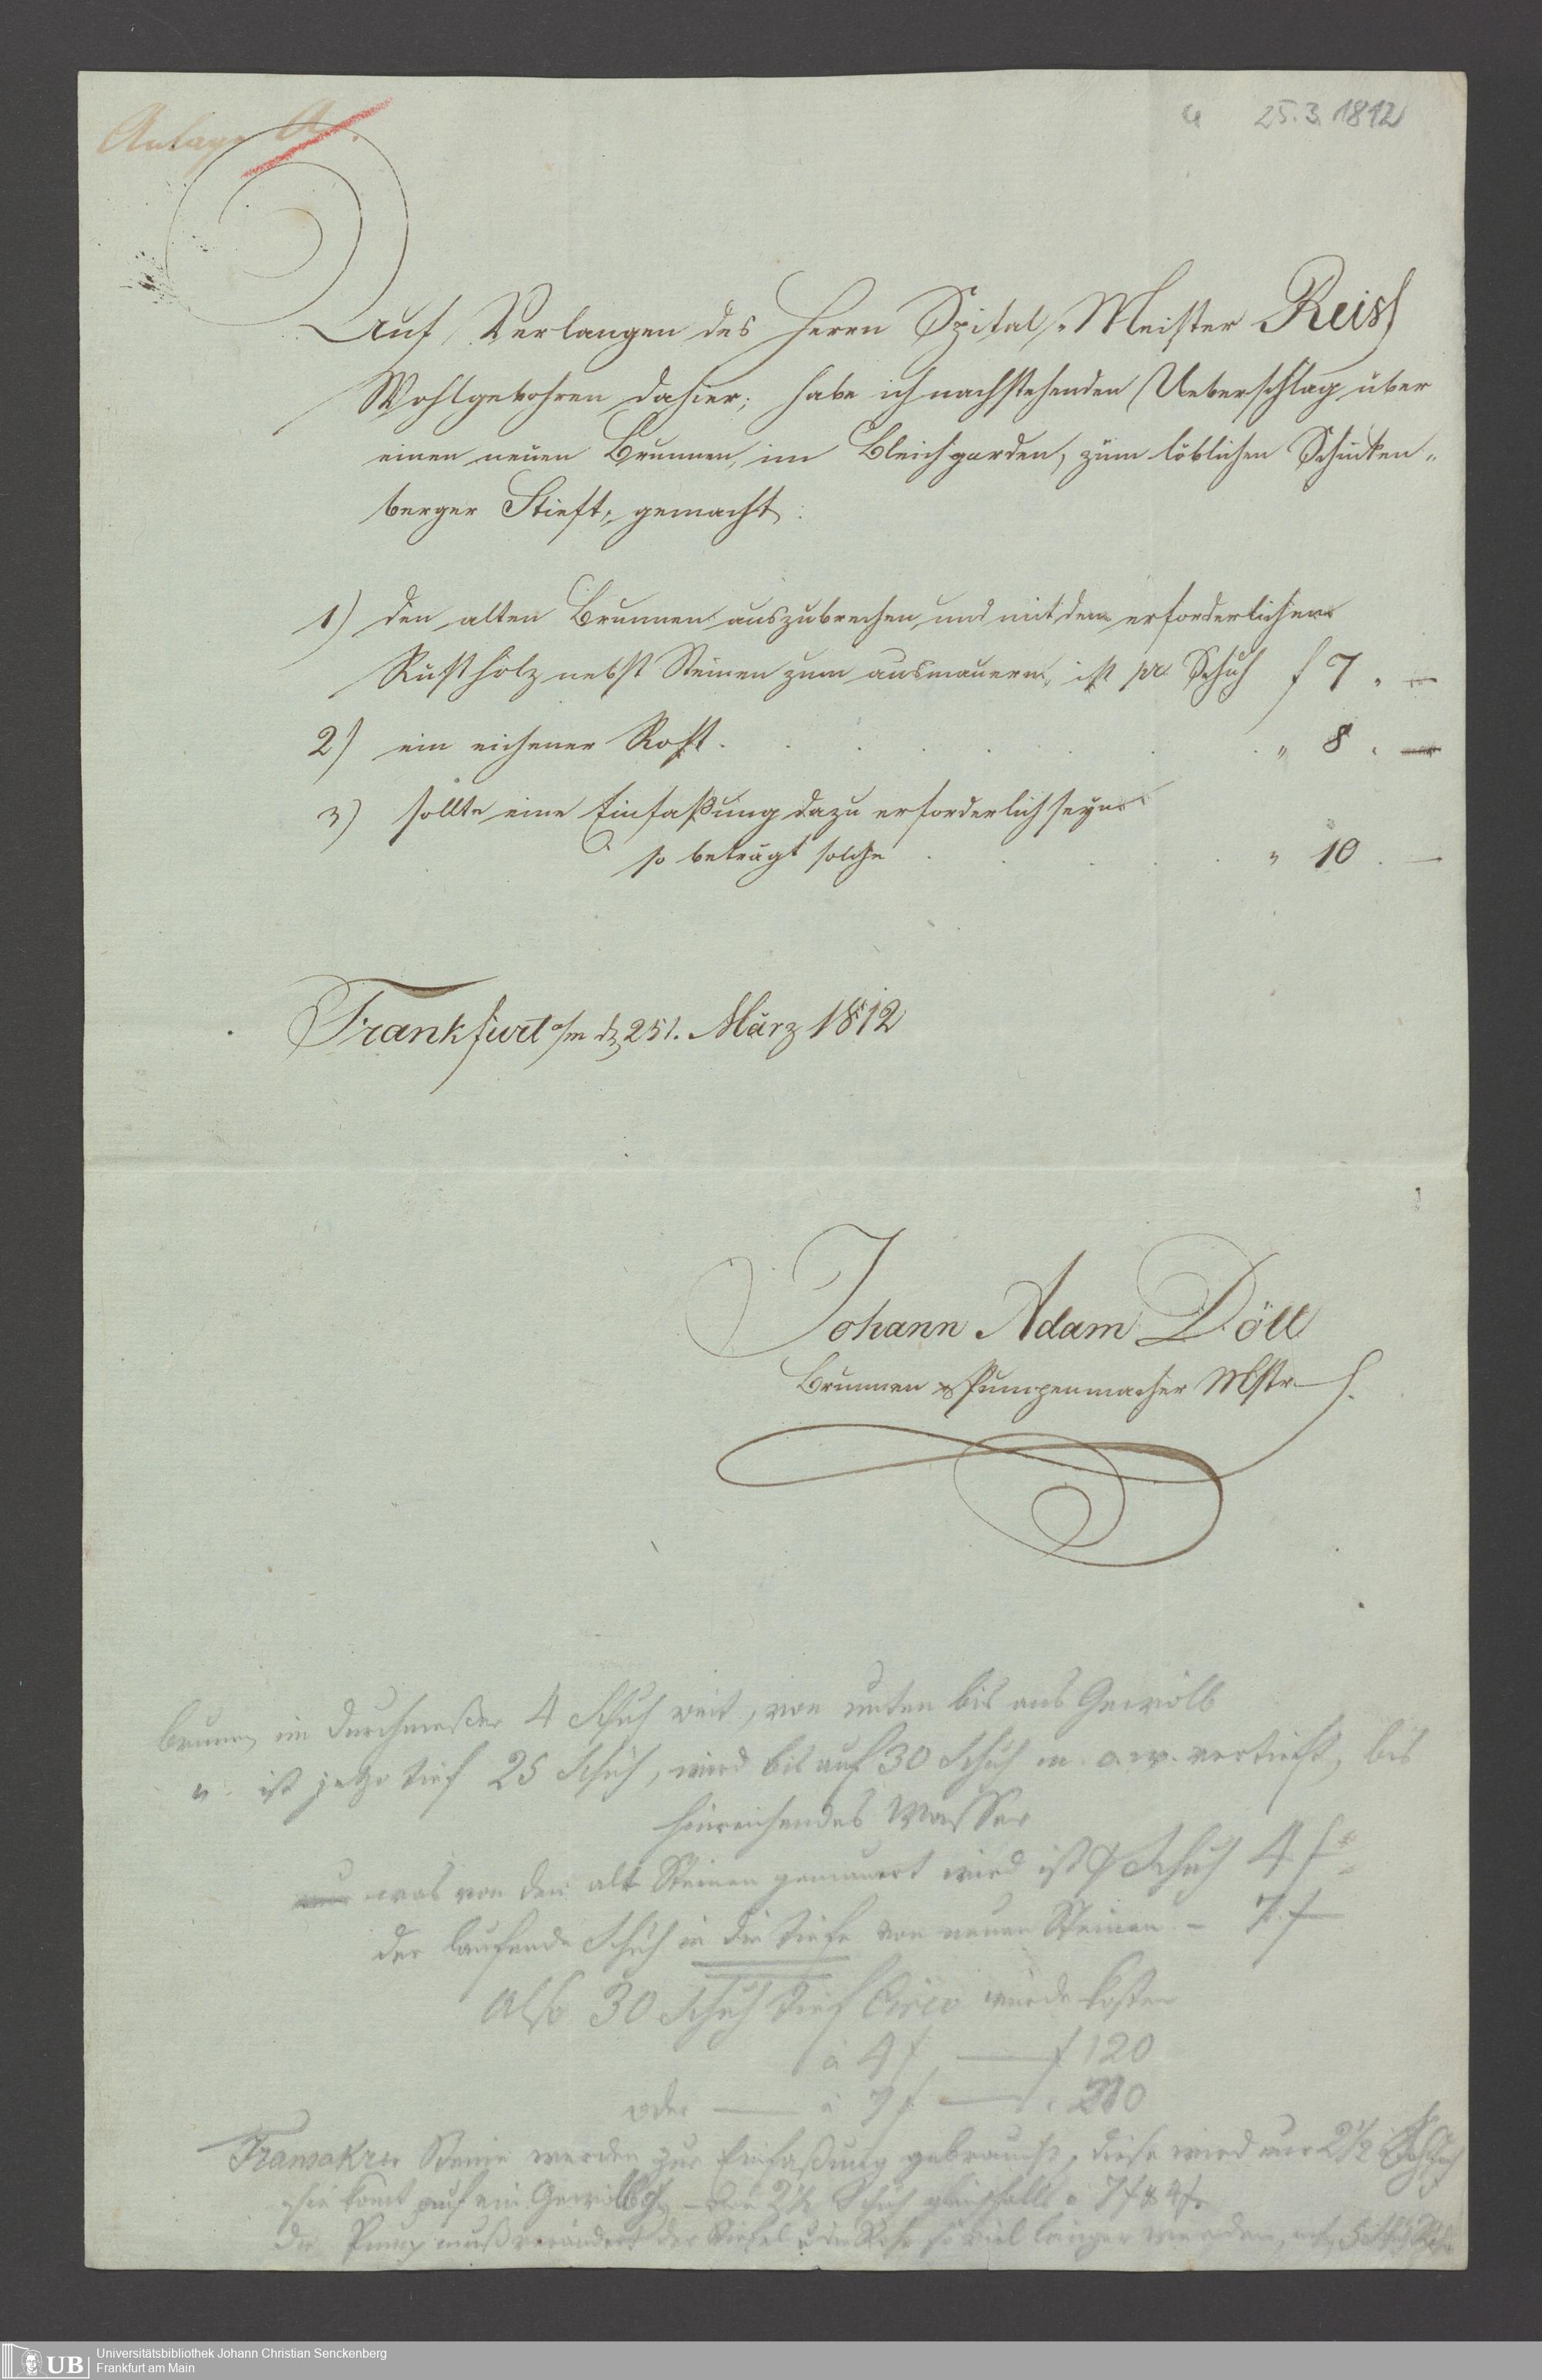 Anlage A.
4 25.3.1812
Auf Verlangen des Herrn Spital-Meister Reiss
Wohlgebohren dahier; habe ich nachstehenden Ueberschlag über
einen neuen Brunnen, im Bleichgarden, zum löblichen Schinken-
berger Stieft, gemacht:
1) den alten Brunnen auszubrechen und mit dem erforderlichen
Rustholz nebst Steinen zum ausmauern, ist pr Schuh f 7 . —
2) ein eichener Rost . . . . . . . „ 8 . —
3) sollte eine Einfaßung dazu erforderlich seyn
so beträgt solche . . . . . „ 10 . —
Frankfurt a/m d 25t. März 1812
Johann Adam Döll
Brunnen & Pumpenmacher Mstr
brunn im Durchmeßer 4 Schuh weit, von unten bis ans Gewölb
" ist jetzo tief 25 Schuh, wird bis auf 30 Schuh m. o. w. vertieft, bis
hinreichendes Wasser
was von den alt Steinen gemauert wird ist Schuh 4 f
der laufende Schuh in die Tiefe von neuen Steinen – 7 f
Also 30 Schuh tief Circo würde kosten
à 4 f — f 120
oder — à 7 f — " 210
Steine werden zur Einfaßung gebraucht, diese wird nur 2½ Schuh
komt auf ein Gewölb 2½ Schuh gleichfalls à 7 f & 4 f.
Die Pump muß verändert der Stiefel & die Rohr so viel länger werden
Universitätsbibliothek Johann Christian Senckenberg
Frankfurt am Main
UB